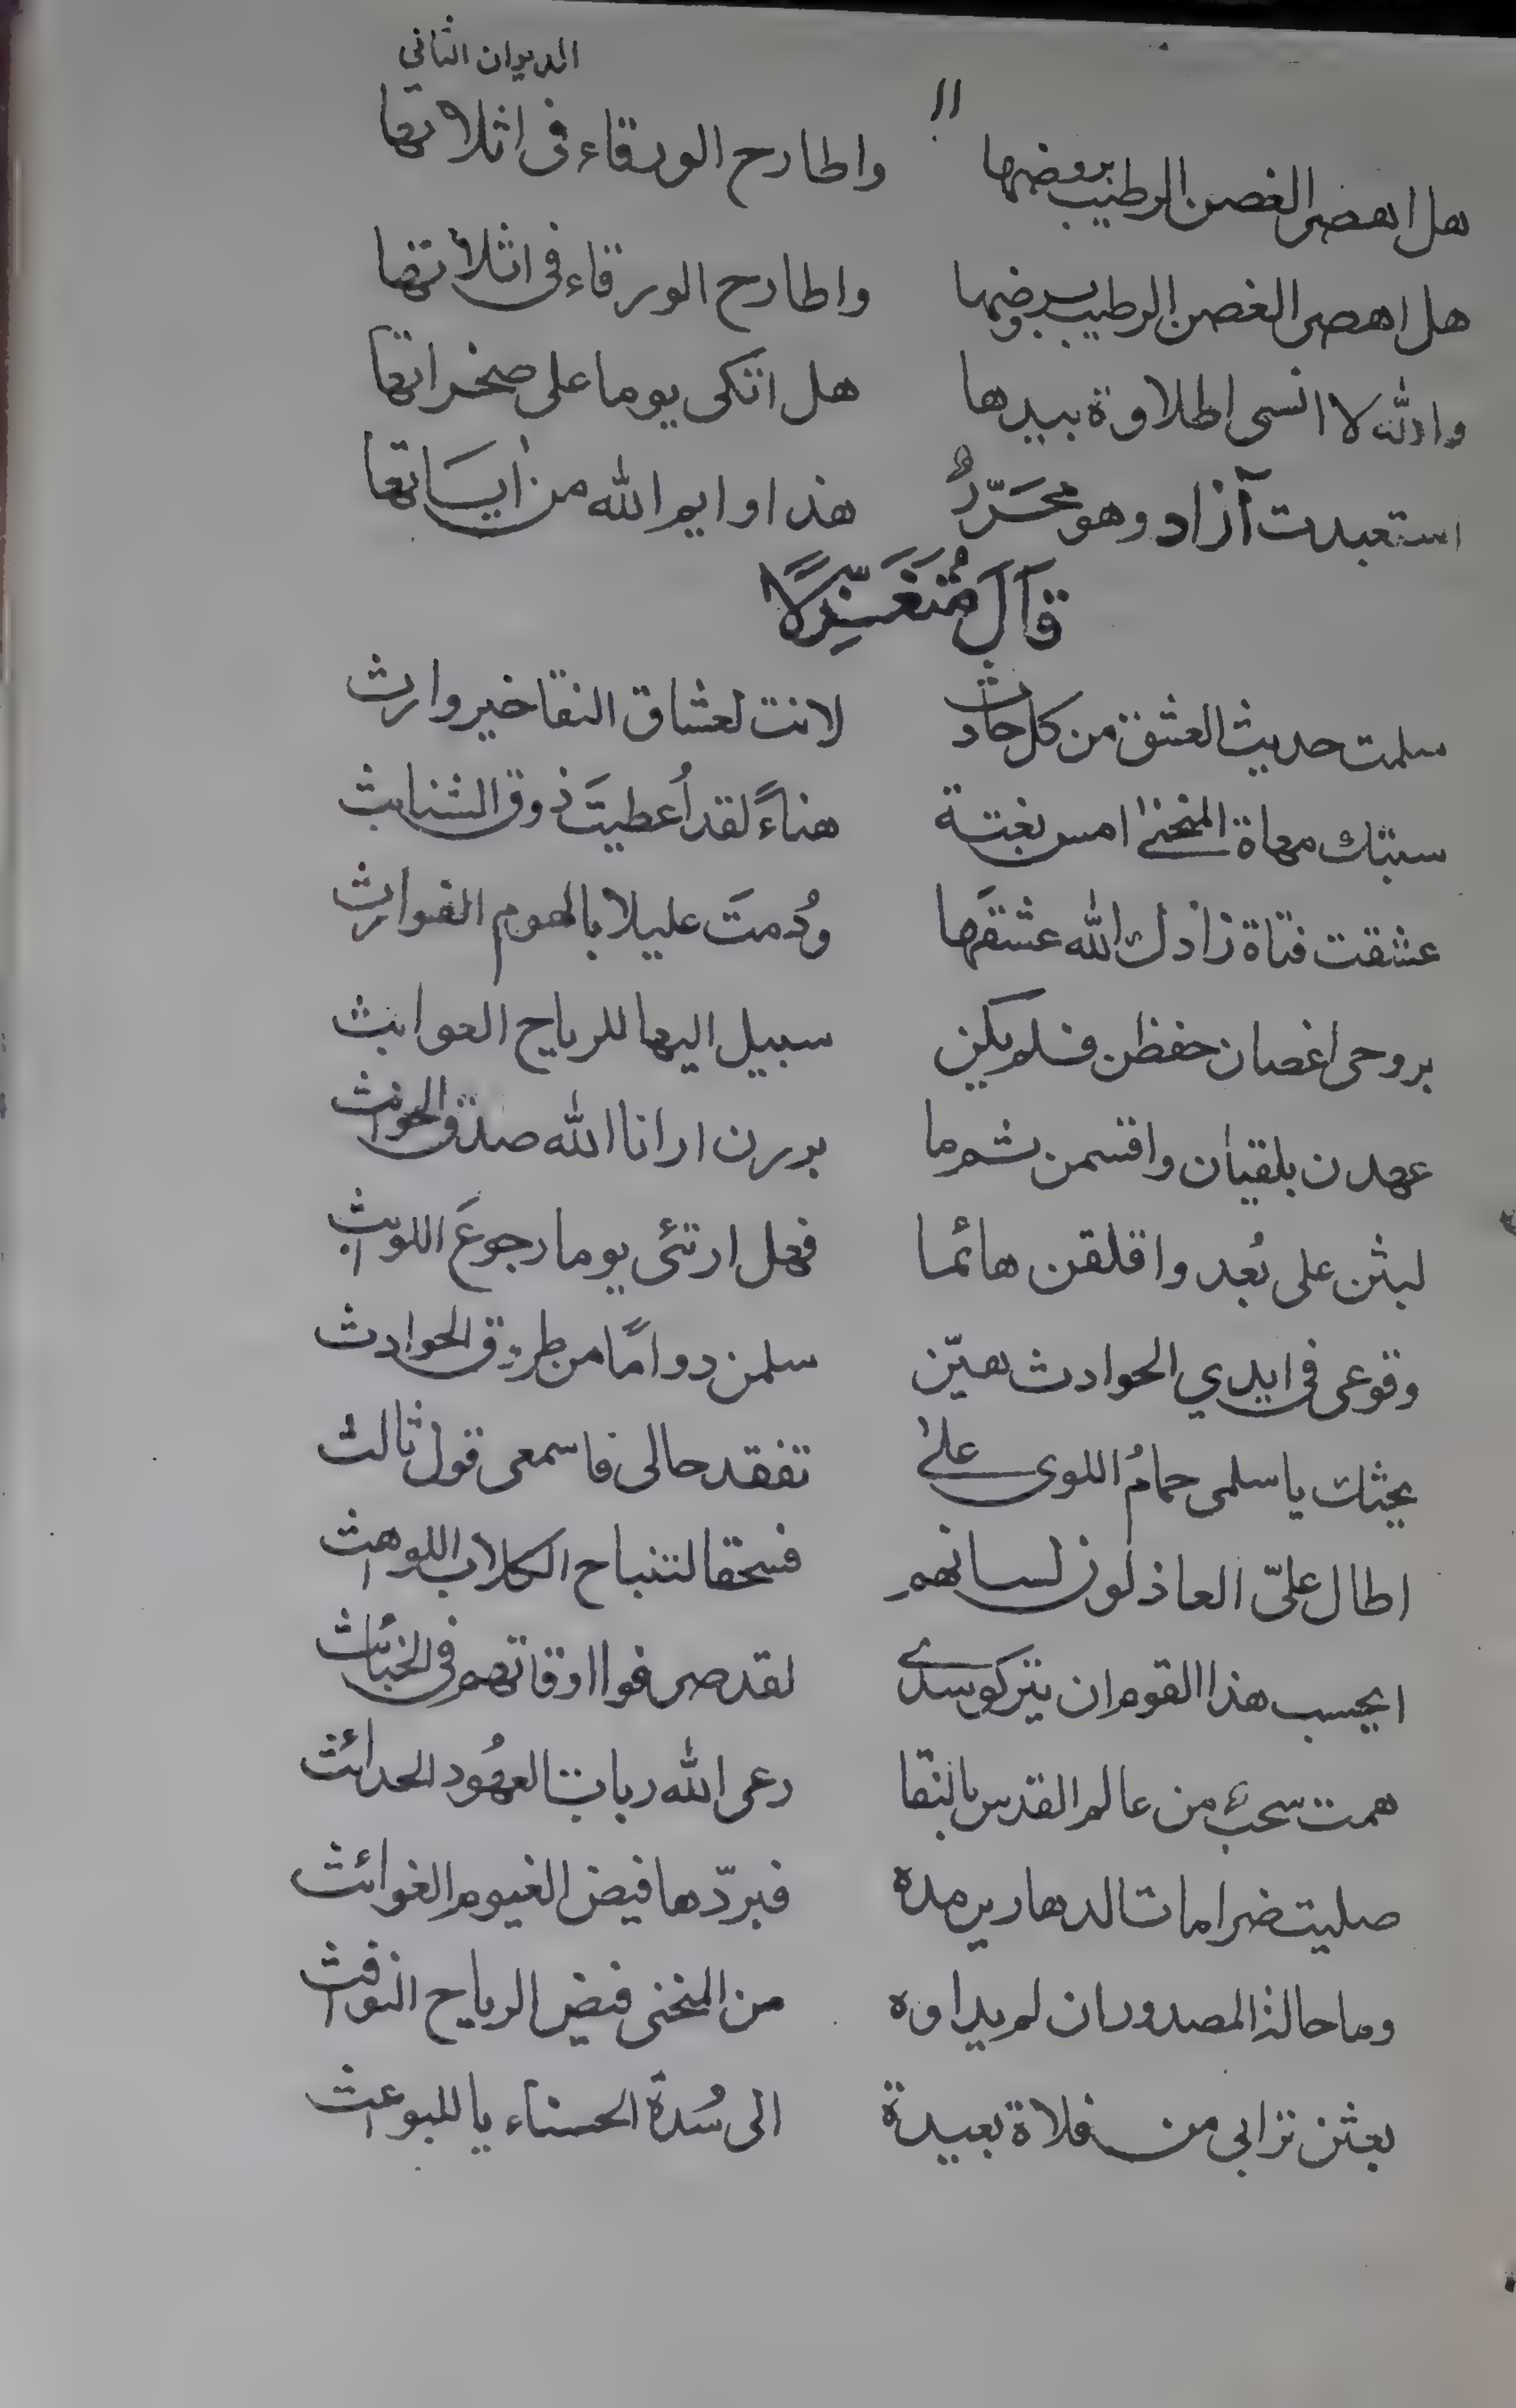 الديوان الثاني
١١
هل اهصر الغصن الرطيب بروضها واطارح الورقاء فى اثلاتها
هل اهصر الغصن الرطيب بروضها واطارح الورقاء فى اثلاتها
والله لا انسى اطلاوة بيدها هل اتكى يوما على صخراتها
استعبدت آزاد وهو محَرّرٌ هذا وايم الله من أيسَاتها
قَالَ مُتَغَزِّلًا
سلمت حديث العشق من كل حادث لانت لعشاق النقا خير وارث
سبتك مهاة المنحنىٰ امس بغتة هناءً لقد أُعطيتَ ذوق الشنابث
عشقت فتاة زادك الله عشقَها ودُمتَ عليلا بالهموم الغوارث
بروحى اغصان حفظن فلم يكن سبيل اليها للرياح العوابث
عهدن بلقيان واقسمن ثم ما بررن ارانا الله صدق الحوانث
لبثن على بُعد واقلقن هائما فهل ارتئى يوما رجوعَ اللوابث
وقوعى فى ايدي الحوادث هيّن سلمن دوامًا من طروق الحوادث
يحثك يا سلمى حمامُ اللوى علىٰ تفقد حالى فاسمعى قول ثالث
اطال علىّ العاذلون لسانهم فسحقا لتنباح الكلاب اللواهث
ايحسب هذا القوم ان يتركو سدى لقد صرفوا اوقاتهم فى الخبائث
همت سحبٌ من عالم القدس بالنقا رعى الله ربات العهُود الحدائث
صليت ضرامات الدهارير مدة فبرّدها فيض الغيوم الغوائث
وما حالة المصدور ان لم يداوه من المنحنى فيض الرياح النوافث
بعثن ترابى من فلاة بعيدة الى سُدة الحسناء يا للبواعث